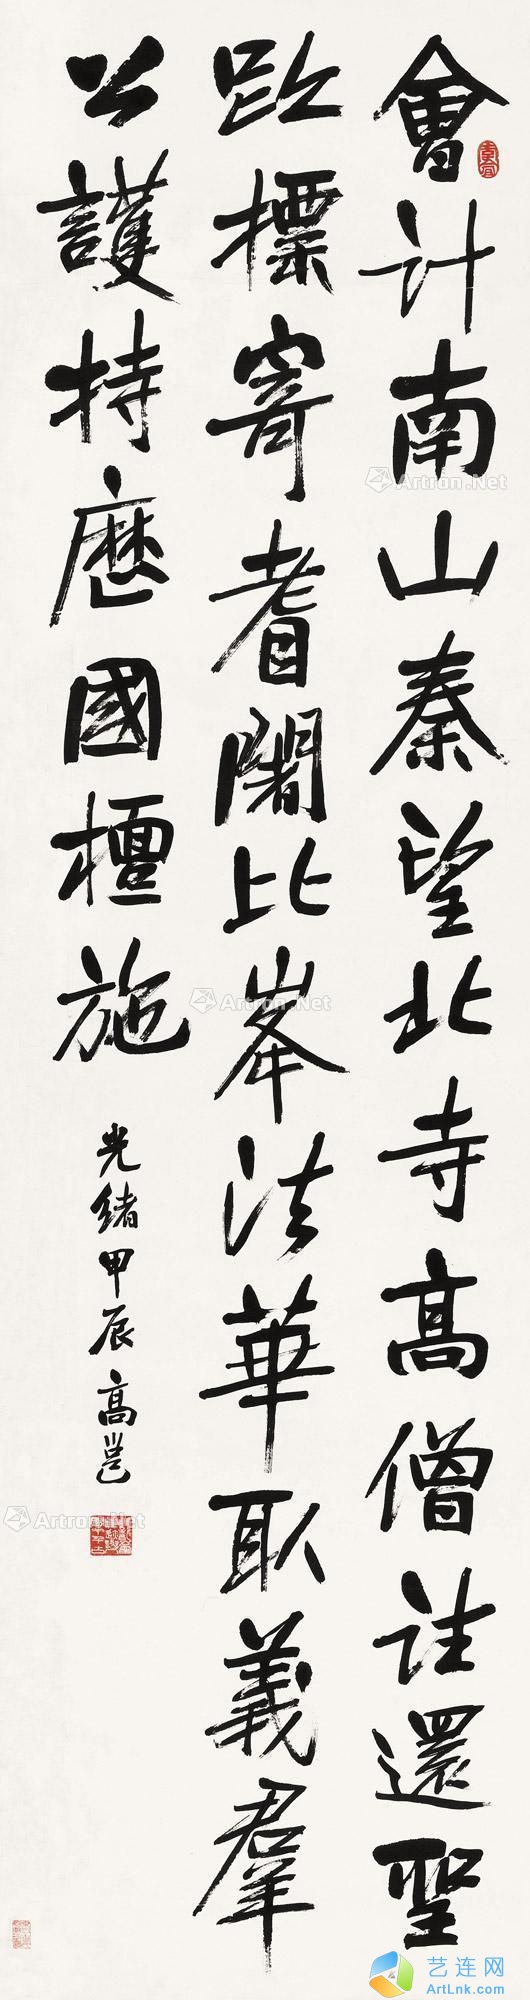 會計南山秦望北寺高僧註還聖
跡標寄耆闍比峯法華取義羣
公護持歷國檀施
光緒甲辰高邕
Artron.Net
Artron.Net
Artron.Net
艺连网
ArtLnk.com